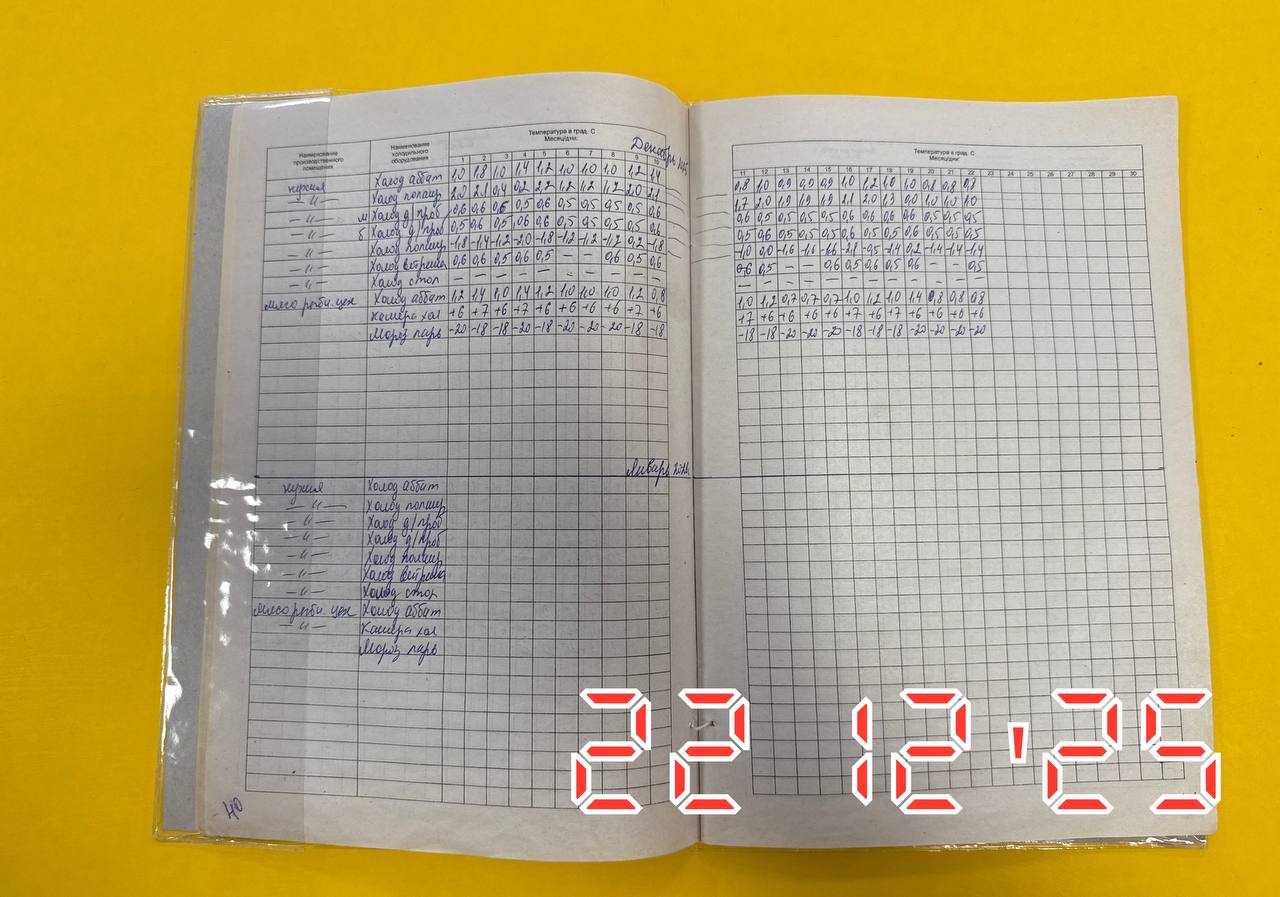 Наименование производственного помещения
Наименование холодильного оборудования
Температура в град. С
Месяц/дни:
Декабрь
1 2 3 4 5 6 7 8 9 10
кухня Холод аббат 1,0 1,8 1,0 1,4 1,2 1,0 1,0 1,0 1,2 1,4
— " — Холод полаир 2,0 2,1 0,4 0,2 2,2 1,2 1,2 1,2 2,0 2,1
— " — м Холод д/проб 0,6 0,6 0,6 0,5 0,6 0,5 0,5 0,5 0,5 0,6
— " — б Холод д/проб 0,5 0,6 0,5 0,6 0,6 0,5 0,5 0,5 0,5 0,6
— " — Холод полаир -1,8 -1,4 -1,2 -2,0 -1,8 -1,2 -1,2 -1,2 0,2 -1,8
— " — Холод витрина 0,6 0,6 0,5 0,6 0,5 — — 0,6 0,5 0,6
— " — Холод стол — — — — — — — — — —
мясо рыбн. цех Холод аббат 1,2 1,4 1,0 1,4 1,2 1,0 1,0 1,0 1,2 0,8
Камера хол +6 +7 +6 +7 +6 +6 +6 +6 +7 +6
Мороз ларь -20 -18 -18 -20 -18 -20 -20 -20 -18 -18
Январь
кухня Холод аббат
— " — Холод полаир
— " — Холод д/проб
— " — Холод д/проб
— " — Холод полаир
— " — Холод витрина
— " — Холод стол
мясо рыбн. цех Холод аббат
— " — Камера хол
Мороз ларь
40
Температура в град. С
Месяц/дни:
11 12 13 14 15 16 17 18 19 20 21 22 23 24 25 26 27 28 29 30
0,8 1,0 0,9 0,9 0,9 1,0 1,2 1,0 1,0 0,8 0,8 0,8
1,7 2,0 1,9 1,9 1,9 2,1 2,0 1,3 0,0 1,0 1,0 1,0
0,6 0,5 0,5 0,5 0,5 0,6 0,6 0,6 0,6 0,5 0,5 0,5
0,5 0,6 0,5 0,5 0,5 0,6 0,5 0,5 0,6 0,5 0,5 0,5
-1,0 0,0 -1,6 -1,6 -1,6 -2,1 -0,5 -1,4 0,2 -1,4 -1,4 -1,4
0,6 0,5 — — 0,6 0,5 0,6 0,5 0,6 — — 0,5
— — — — — — — — — — — —
1,0 1,2 0,7 0,7 0,7 1,0 1,2 1,0 1,4 0,8 0,8 0,8
+7 +6 +6 +6 +6 +7 +6 +7 +6 +6 +6 +6
-18 -18 -20 -20 -20 -18 -18 -18 -20 -20 -20 -20
22 12 '25